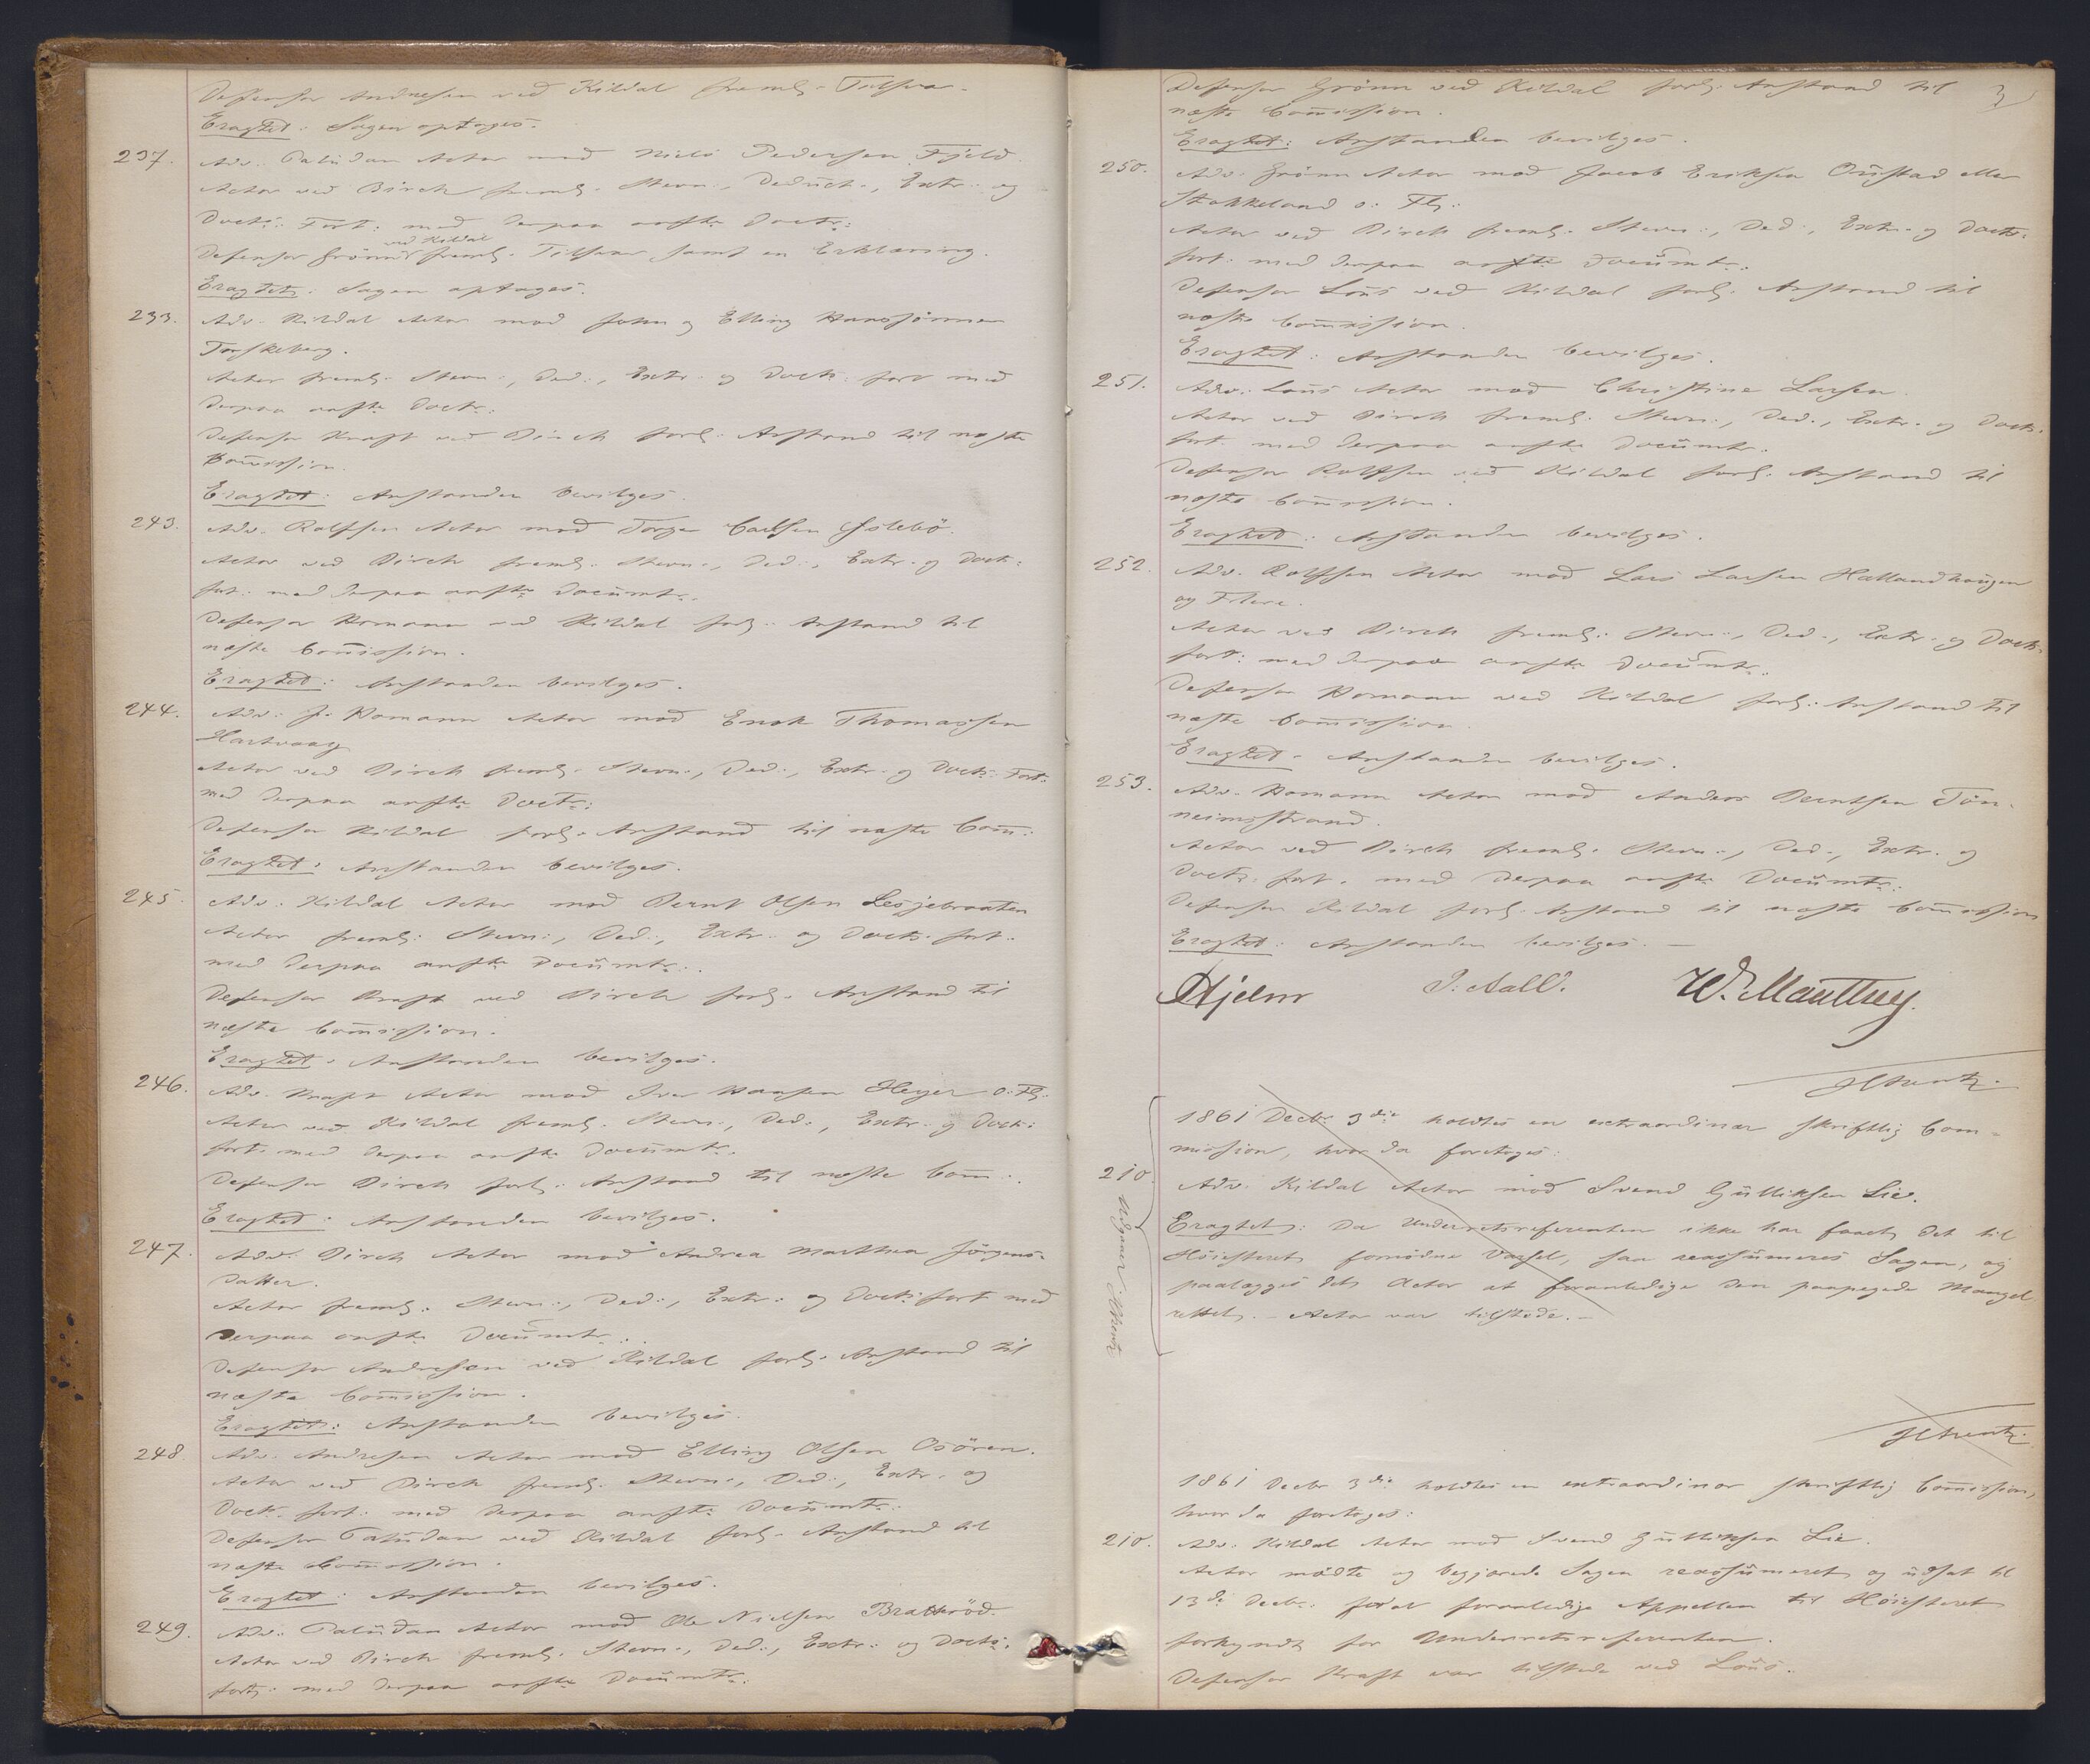 Defensor Andresen ved Kildal freml. Tilsvar.
Eragtet: Sagen optages.
237. Adv. Paludan Actor mod Niels Pedersen Fjeld.
Actor ved Birch freml. Stevn:, Deduct:, Extr. og
Doct: Fort: med derpaa anfte Doctr:
ved Kildal
Defensor Grönn freml. Tilsvar samt en Erklæring.
Eragtet: Sagen optages.
233. Adv. Kildal Actor mod John og Elling Hanssönner
Torskeberg.
Actor freml. Stevn:, Ded:, Extr. og Doct: fort med
derpaa anfte Doctr:
Defensor Kraft ved Birch forl. Anstand til næste
Commission.
Eragtet: Anstanden bevilges.
243. Adv. Rolfsen Actor mod Torger Carlsen
Actor ved Birch freml. Stevn:, Ded:, Extr. og Doct:
fort: med derpaa anfte Documtr:
Defensor Homann ved Kildal forl: Anstand til
næste Commission.
Eragtet: Anstanden bevilges.
244. Adv: J. Homann Actor mod Enok Thomassen
Hartvaag
Actor ved Birch freml. Stevn:, Ded:, Extr. og Doct: Fort:
med derpaa anfte Doctr:
Defensor Kildal forl. Anstand til næste Comm:
Eragtet: Anstanden bevilges.
245. Adv. Kildal Actor mod Bernt Olsen Lesjebraaten
Actor freml: Stevn:, Ded:, Extr. og Doct: fort.
med derpaa anfte Documtr:
Defensor Kraft ved Birch forl. Anstand til
næste Commission.
Eragtet: Anstanden bevilges.
246. Adv. Kraft Actor mod Iver Hansen Heyer o. Fl.
Actor ved Kildal freml. Stevn:, Ded:, Extr. og Doct:
fort: med derpaa anfte Documtr:
Defensor Birch forl: Anstand til næste Comm:
Eragtet: Anstanden bevilges.
247. Adv. Birch Actor mod Andrea Marthea Jörgens-
datter.
Actor freml: Stevn:, Ded:, Extr: og Doct: fort med
derpaa anfte Documtr:
Defensor Andresen ved Kildal forl. Anstand til
næste Commission.
Eragtet: Anstanden bevilges.
248. Adv. Andresen Actor mod Elling Olsen Osören.
Actor ved Birch freml. Stevn:, Ded:, Extr. og
Doct: fort: med derpaa anfte Documtr:
Defensor Paludan ved Kildal forl. Anstand til
næste Commission.
Eragtet: Anstanden bevilges.
249. Adv: Paludan Actor mod Ole Nielsen Bratteröd.
Actor ved Birch freml. Stevn:, Ded:, Extr: og Doct:
fort: med derpaa anfte Documtr:
3
Defensor Grönn ved Kildal forl. Anstand til
næste Commission.
Eragtet: Anstanden bevilges.
250. Adv. Grönn Actor mod Jacob Eriksen Oustad eller
Stokkeland o. Fl:
Actor ved Birch freml. Stevn:, Ded:, Extr. og Doct:
fort: med derpaa anfte Documtr:
Defensor Lous ved Kildal forl. Anstand til
næste Commission.
Eragtet: Anstanden bevilges.
251. Adv. Lous Actor mod Christine Larsen.
Actor ved Birch freml. Stevn:, Ded:, Extr. og Doct:
fort. med derpaa anfte Documtr:
Defensor Rolfsen ved Kildal forl. Anstand til
næste Commission.
Eragtet: Anstanden bevilges.
252. Adv. Rolfsen Actor mod Lars Larsen Hallandhaugen
og Flere.
Actor ved Birch freml: Stevn:, Ded:, Extr. og Doct:
fort: med derpaa anfte Documtr:
Defensor Homann ved Kildal forl: Anstand til
næste Commission.
Eragtet: Anstanden bevilges.
253. Adv. Homann Actor mod Anders Berntsen Tön-
neimstrand.
Actor ved Birch freml. Stevn:, Ded:, Extr. og
Doct: fort. med derpaa anfte Documtr:
Defensor Kildal forl. Anstand til næste Commission
Eragtet: Anstanden bevilges. —
Hjelm J. Aall. W. Manthey.
1861 Decbr 3die holdtes en extraordinær skriftlig Com-
mission, hvor da foretages:
210. Adv. Kildal Actor mod Svend Gulliksen Lie.
Udgaaer
Eragtet: Da Underretsreferenten ikke har faaet det til
Höiesteret fornödne Varsel, saa reassumeres Sagen, og
paalægges det Actor at foranledige den paapegede Mangel
rettet. — Actor var tilstede. —
1861 Decbr 3die holdtes en extraordinær skriftlig Commission,
hvor da foretages:
210. Adv. Kildal Actor mod Svend Gulliksen Lie.
Actor mödte og begjærede Sagen reassumeret og udsat til
13de Decbr: for at foranledige Appellen til Höiesteret
forkyndt for Underretsreferenten.
Defensor Kraft var tilstede ved Lous.